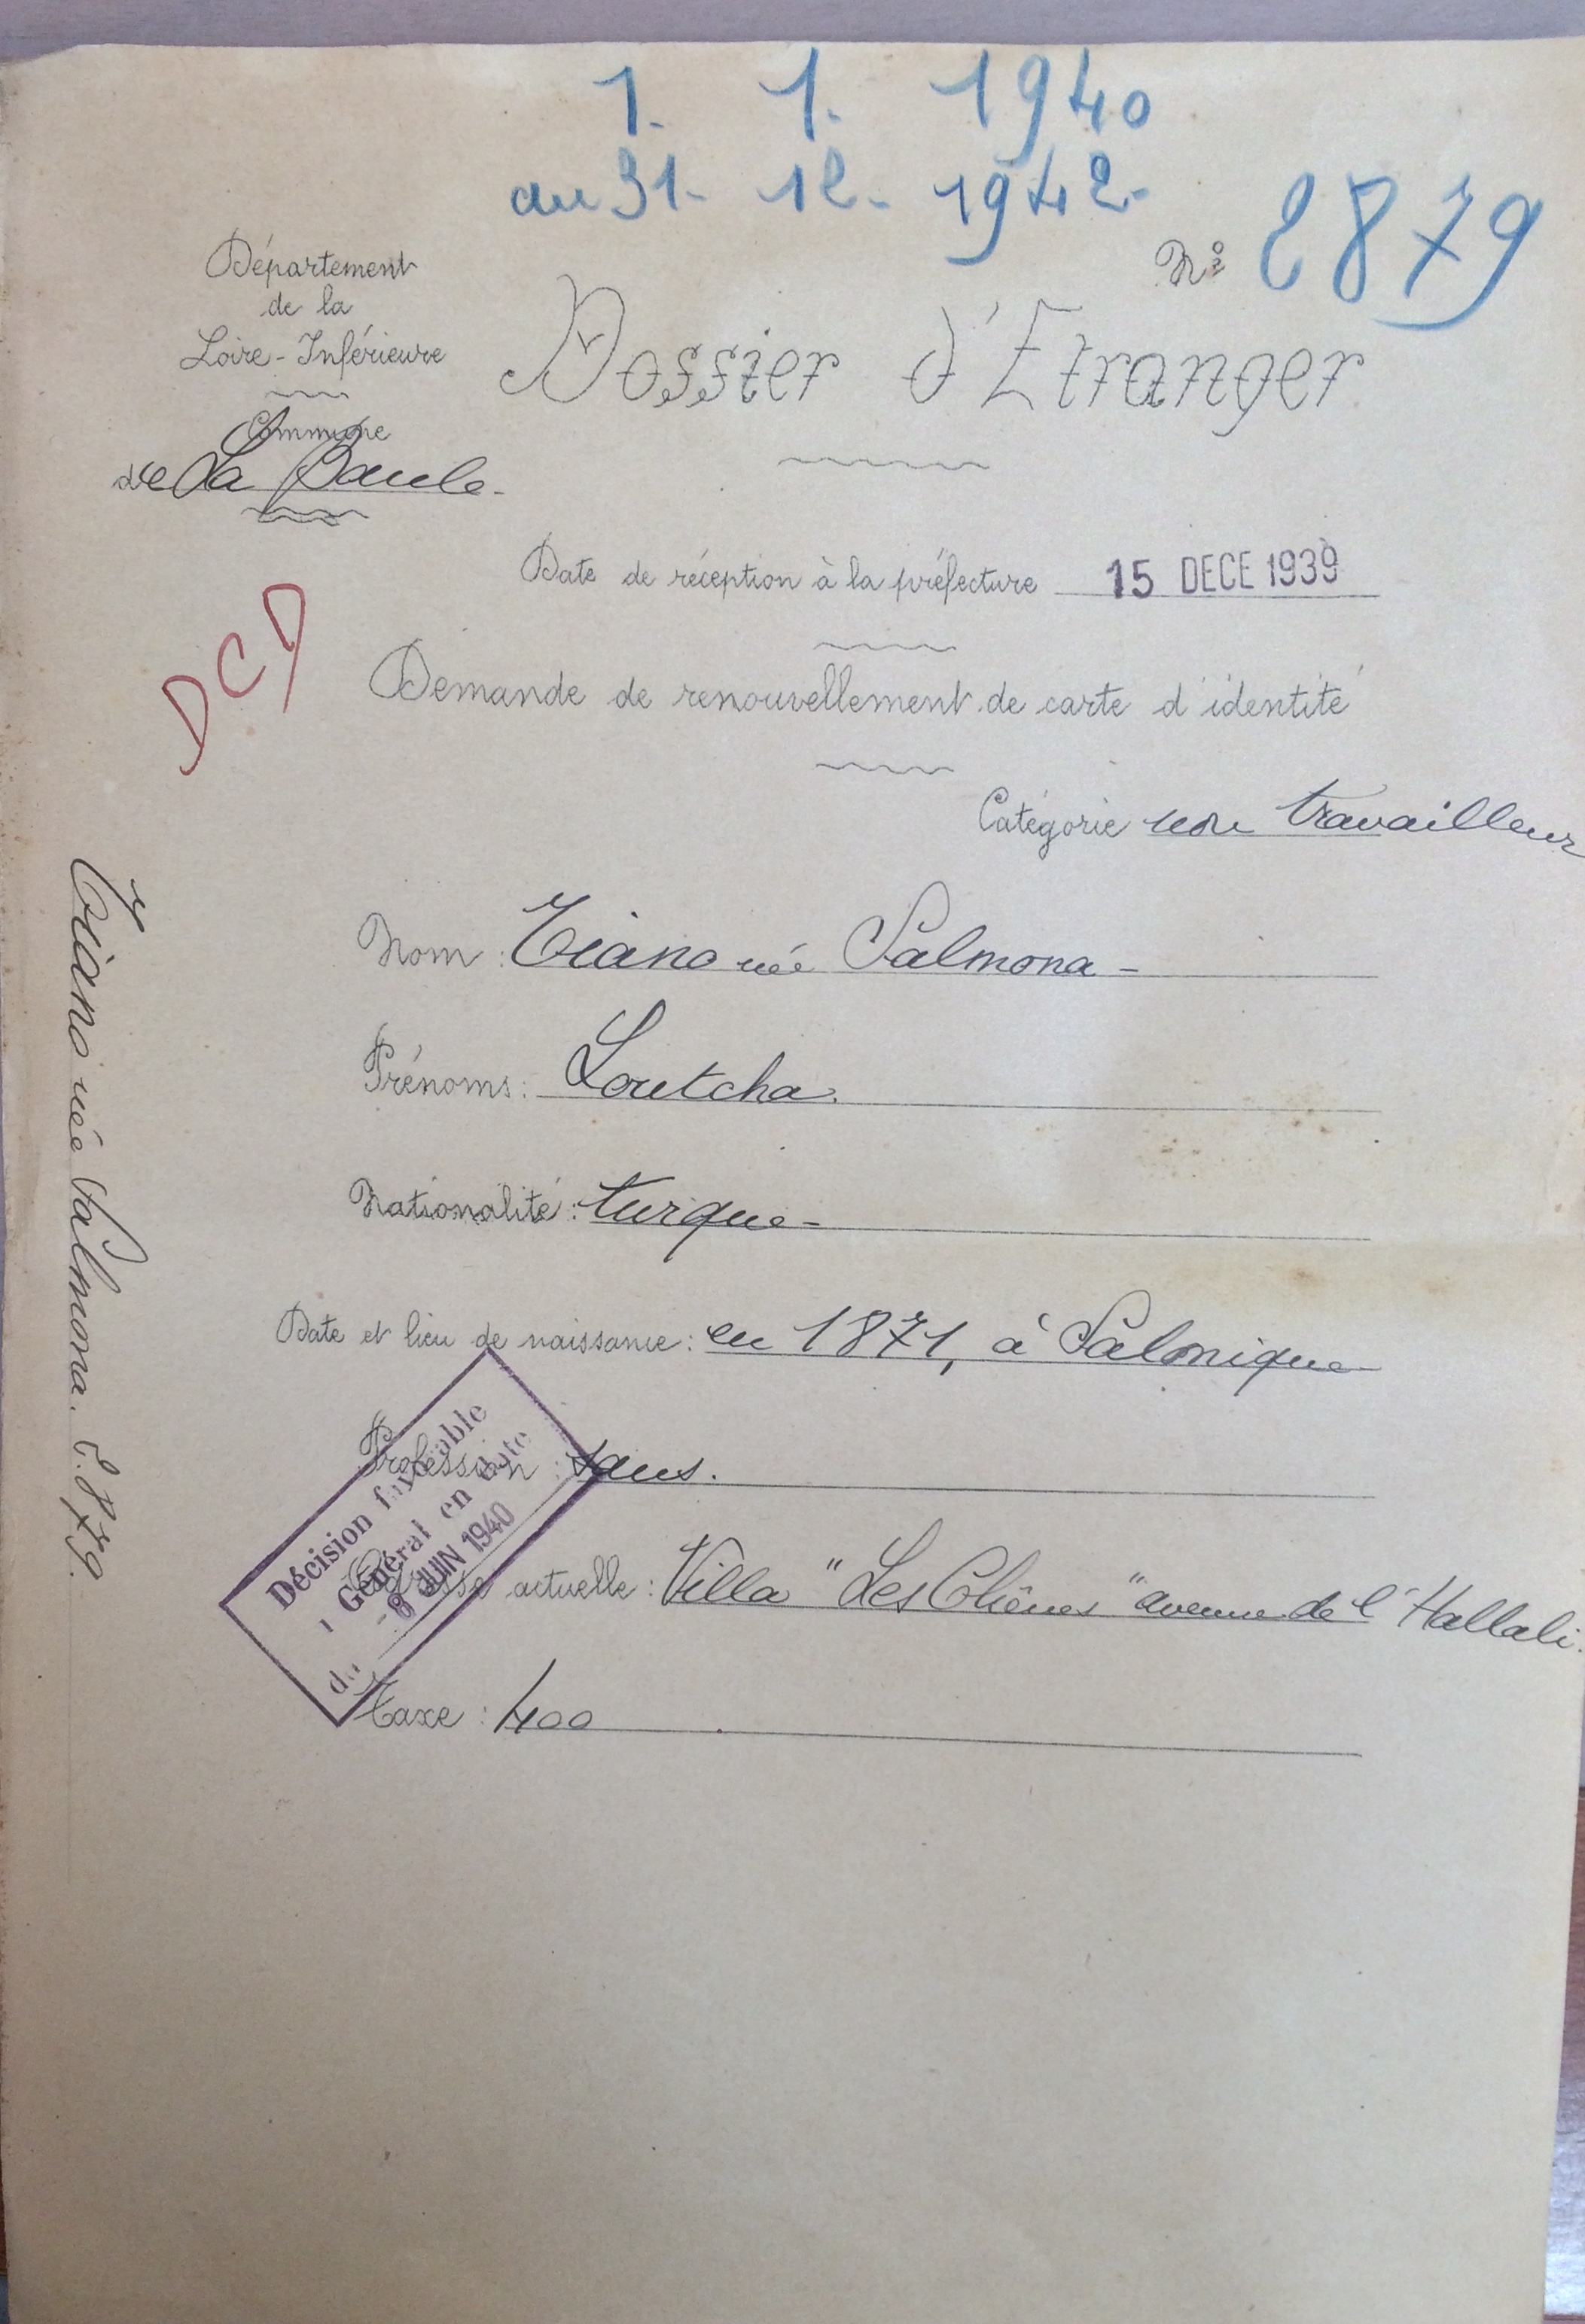 1. 1. 1940
au 31. 12. 1942.
N° 2879
Département
de la
Loire-Inférieure
Commune
de La Baule.
Dossier d'Etranger
Date de réception à la préfecture 15 DECE 1939
DCD
Demande de renouvellement de carte d'identité
Catégorie non travailleur
Nom : Tiano née Salmona -
Prénoms : Loutcha.
Nationalité : turque -
Date et lieu de naissance : en 1871, à Salonique
Profession : sans.
actuelle : Villa "Les Chênes" avenue de l'Hallali.
Taxe : 400
Décision favorable
Général en date
du - 8 JUIN 1940
Tiano née Salmona. 2.879.